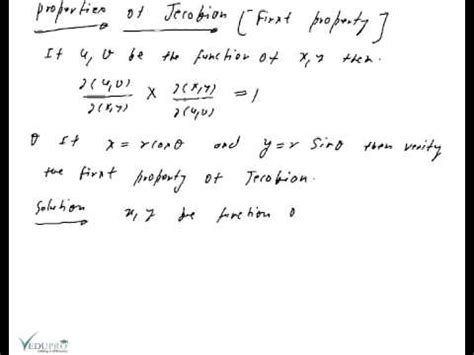 Properties of Jecobion [First property]
If u, v be the function of x, y then.
∂(u,v)/∂(x,y) × ∂(x,y)/∂(u,v) = 1
If x = r cosθ and y = r sinθ then verify
the first property of Jecobion.
Solution x, y be function o
VEDUPRO